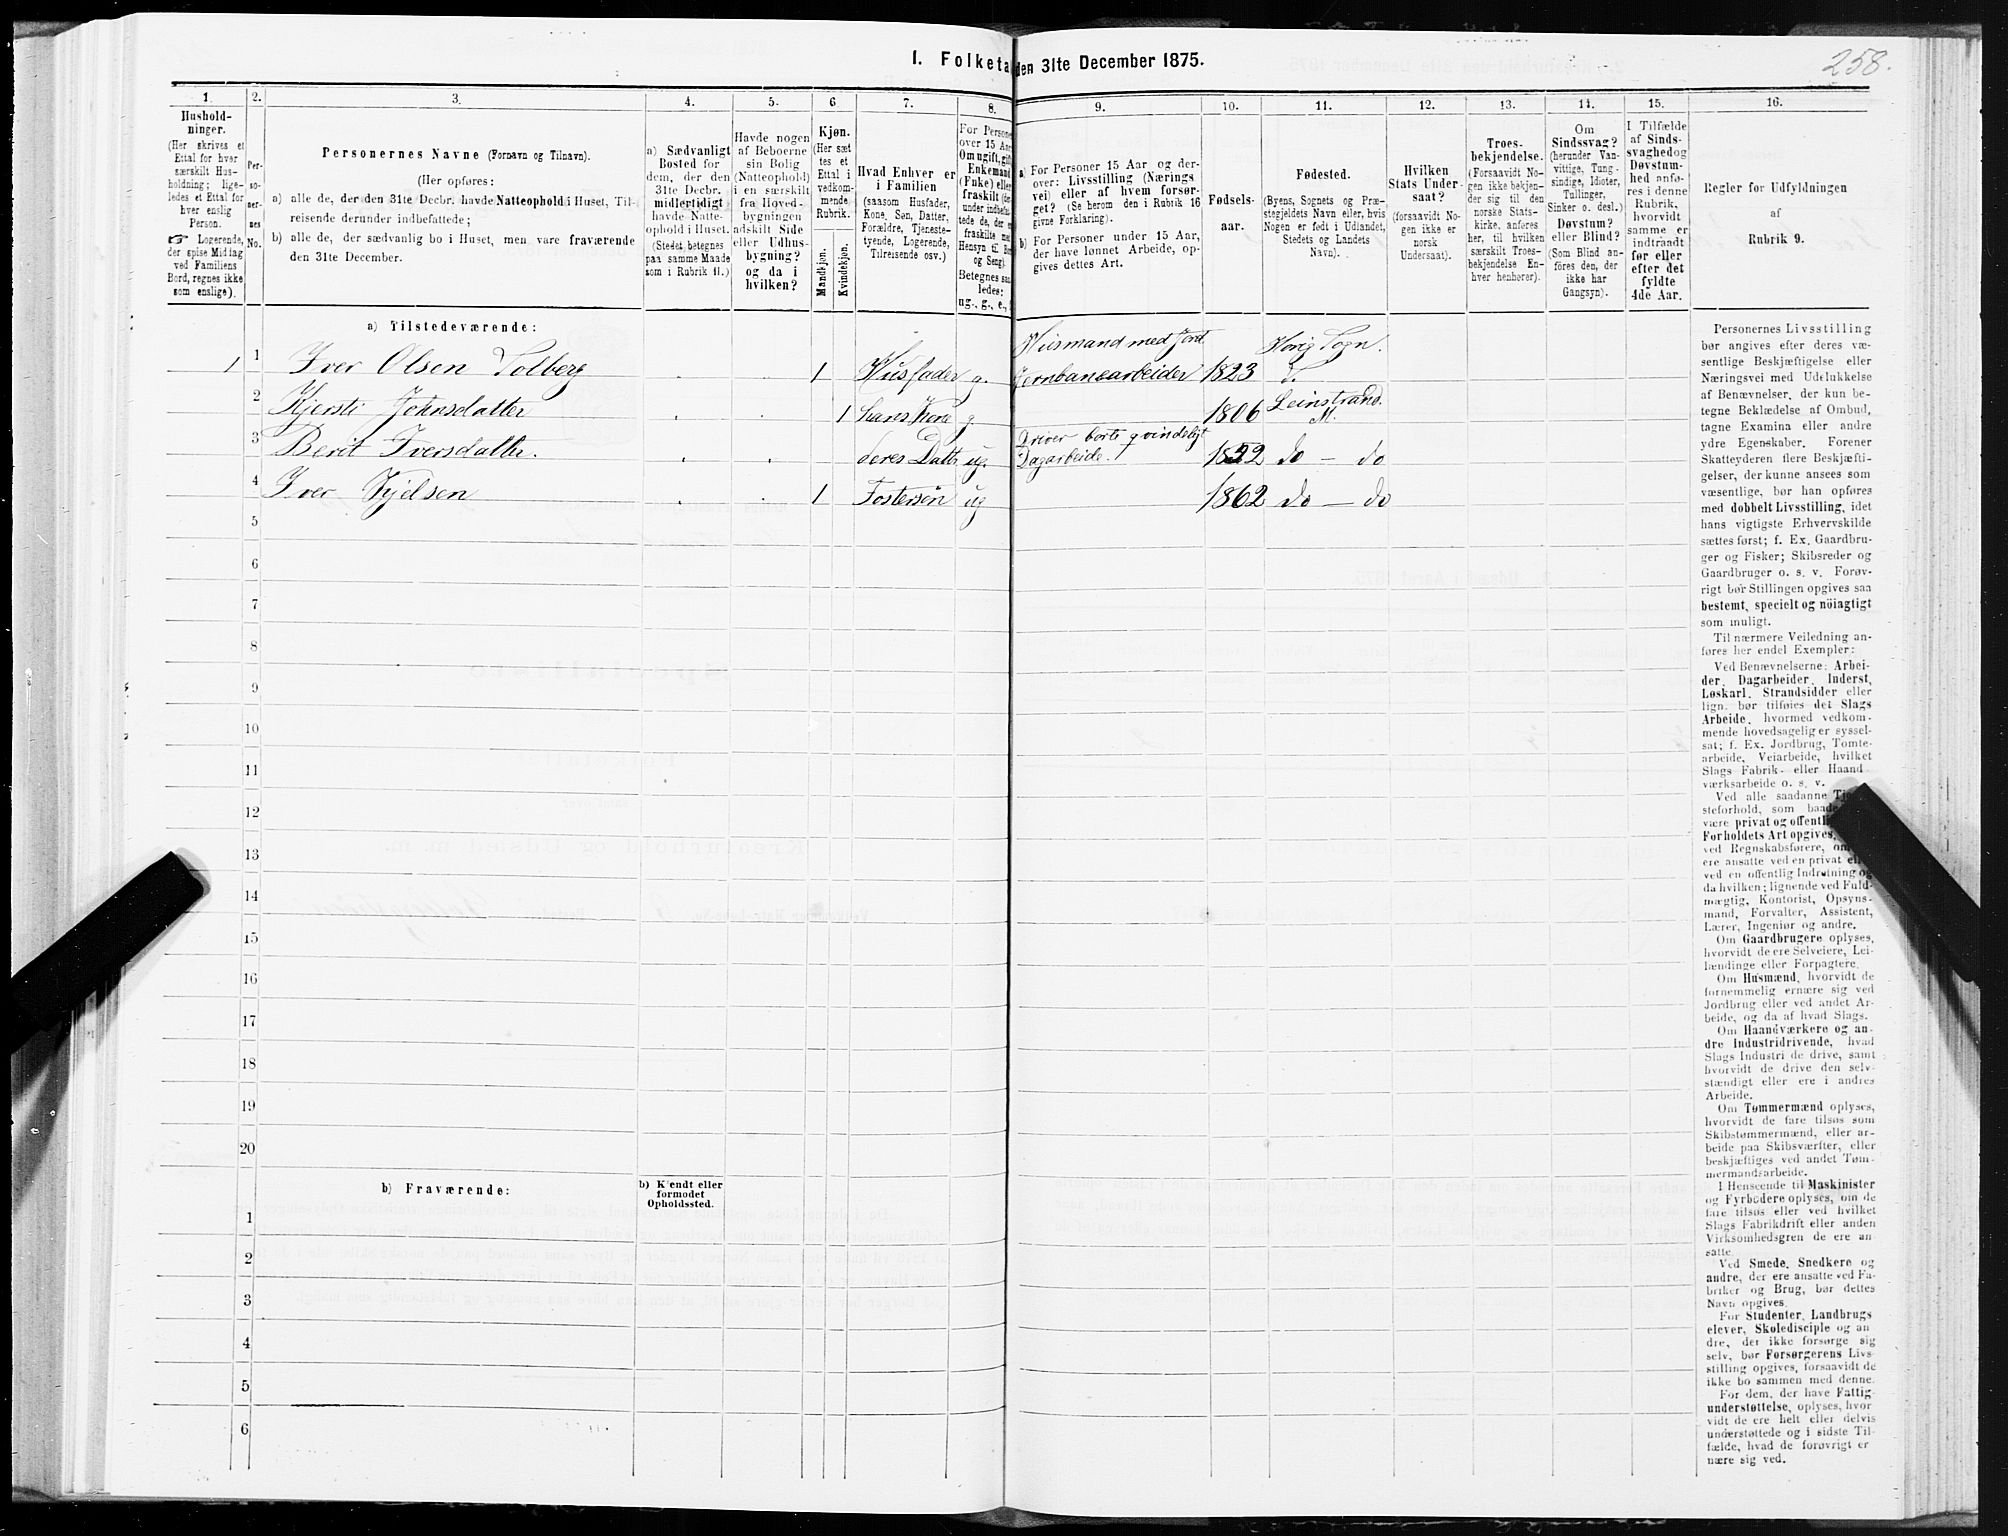 258.
I. Folketal den 31te December 1875.
1. 2. 3. 4. 5. 6 7. 8. 9. 10. 11. 12. 13. 14. 15. 16.
Hushold-
ninger.
(Her skrives et
Ettal for hver
særskilt Hus-
holdning; lige-
ledes et Ettal for
hver enslig
Person.
☞ Logerende,
der spise Middag
ved Familiens
Bord, regnes ikke
som enslige).
Per-
so-
ner-
nes
No.
Personernes Navne (Fornavn og Tilnavn).
(Her opføres:
a) alle de, der den 31te Decbr. havde Natteophold i Huset, Til-
reisende derunder indbefattede;
b) alle de, der sædvanlig bo i Huset, men vare fraværende
den 31te December.
a) Sædvanligt
Bosted for
dem, der den
31te Decbr.
midlertidigt
havde Natte-
ophold i Huset.
(Stedet betegnes
paa samme Maade
som i Rubrik 11.)
Havde nogen
af Beboerne
sin Bolig
(Natteophold)
i en særskilt
fra Hoved-
bygningen
adskilt Side
eller Udhus-
bygning?
og da i
hvilken?
Kjøn.
(Her sæt
tes et
Ettal i
vedkom-
mende
Rubrik.
Mandkjøn.
Kvindekjøn.
Hvad Enhver er
i Familien
(saasom Husfader,
Kone, Søn, Datter,
Forældre, Tjeneste-
tyende, Logerende,
Tilreisende osv.)
For Persone
over 15 Aar
Om ugift, gift
Enkemand
(Enke) eller
fraskilt
Betegnes saa
ledes:
ug., g., e.,
a) For Personer 15 Aar og der-
over: Livsstilling (Nærings
vei) eller af hvem forsør-
get? (Se herom den i Rubrik 16
givne Forklaring).
b) For Personer under 15 Aar,
der have lønnet Arbeide, op-
gives dettes Art.
Fødsels-
aar.
Fødested.
(Byens, Sognets og Præ-
stegjeldets Navn eller, hvis
Nogen er født i Udlandet,
Stedets og Landets
Navn).
Hvilken
Stats Under-
saat?
(forsaavidt No-
gen ikke er
norsk
Undersaat).
Troes-
bekjendelse.
(Forsaavidt No-
gen ikke bekjen-
der sig til den
norske Stats-
kirke, anføres
her, til hvilken
særskilt Troes-
bekjendelse En-
hver henhører).
Om
Sindssvag?
(herunder Van-
vittige, Tung-
sindige, Idioter,
Tullinger,
Sinker o. desl.)
Døvstum?
eller Blind?
(Som Blind an-
føres den, der
ikke har
Gangsyn).
I Tilfælde
af Sinds-
svaghed og
Døvstum-
hed anfø-
res i denne
Rubrik,
hvorvidt
samme er
indtraadt
før eller
efter det
fyldte
4de Aar.
Regler for Udfyldningen
af
Rubrik 9.
a) Tilstedeværende:
1 1 Iver Olsen Solberg 1 Husfader g. Husmand med Jord Jernbanearbeider 1823 Horig Sogn. S.
2 Kjersti Johnsdatter 1 hans Kone g 1806 Leinstrand. M.
3 Berit Iversdatter. deres Datter ug. Driver borte qvindeligt Dagarbeide. 1852 do — do
4 Iver Kjelsen 1 Fostersøn ug 1862 do — do
5
6
7
8
9
10
11
12
13
14
15
16
17
18
19
20
b) Fraværende:
b) Kjendt eller
formodet
Opholdssted.
1
2
3
4
5
6
Personernes Livsstilling
bør angives efter deres væ-
sentlige Beskjæftigelse eller
Næringsvei med Udelukkelse
af Benævnelser, der kun be-
tegne Beklædelse af Ombud,
tagne Examina eller andre
ydre Egenskaber. Forener
Skatteyderen flere Beskjæfti-
gelser, der kunne ansees som
væsentlige, bør han opføres
med dobbelt Livsstilling, idet
hans vigtigste Erhvervskilde
sættes først; f. Ex. Gaardbru-
ger og Fisker; Skibsreder og
Gaardbruger o. s. v. Forøv-
rigt bør Stillingen opgives saa
bestemt, specielt og nöiagtigt
som muligt.
Til nærmere Veiledning an-
føres her endel Exempler:
Ved Benævnelserne: Arbei-
der, Dagarbeider, Inderst,
Løskarl, Strandsidder eller
lign. bør tilføies det Slags
Arbeide, hvormed vedkom-
mende hovedsagelig er syssel-
sat; f. Ex. Jordbrug, Tomte-
arbeide, Veiarbeide, hvilket
Slags Fabrik- eller Haand-
værksarbeide o. s. v.
Ved alle saadanne
steforhold, som baade
være privat og offentlig,
Forholdets Art opgives,
ved Regnskabsførere, om
ere ansatte ved en privat eller
ved en offentlig Indretning og
da hvilken; lignende ved Fuld-
mægtig, Kontorist, Opsyns-
mand, Forvalter, Assistent,
Lærer, Ingeniør og andre.
Om Gaardbrugere oplyses,
hvorvidt de ere Selveiere, Lei-
lændinge eller Forpagtere.
Om Husmænd, hvorvidt de
fornemmelig ernære sig ved
Jordbrug eller ved andet Ar-
beide, og da af hvad Slags.
Om Haandværkere og an-
dre Industridrivende, hvad
Slags Industri de drive, samt
hvorvidt de drive den selv-
stændigt eller ere i andres
Arbeide.
Om Tømmermænd oplyses,
hvorvidt de fare tilsøs som
Skibstømmermænd, eller ar-
beide paa Skibsværfter, eller
beskjæftiges ved andet Tøm-
mermandsarbeide.
I Henseende til Maskinister
og Fyrbødere oplyses, om de
fare tilsøs eller ved hvilket
Slags Fabrikdrift eller anden
Virksomhedsgren de ere an-
satte.
Ved Smede, Snedkere og
andre, der ere ansatte ved Fa-
briker og Brug, bør dettes
Navn opgives.
For Studenter, Landbrugs
elever, Skoledisciple og an
dre, der ikke forsørge sig
selv, bør Forsørgerens Livs-
stilling opgives, forsaavidt de
ikke bo sammen med denne.
For dem, der have Fattig-
understøttelse, oplyses, hvor
vidt de ere helt eller delvis
understøttede og i sidste Til-
fælde, hvad de forøvrigt er
nære sig ved.